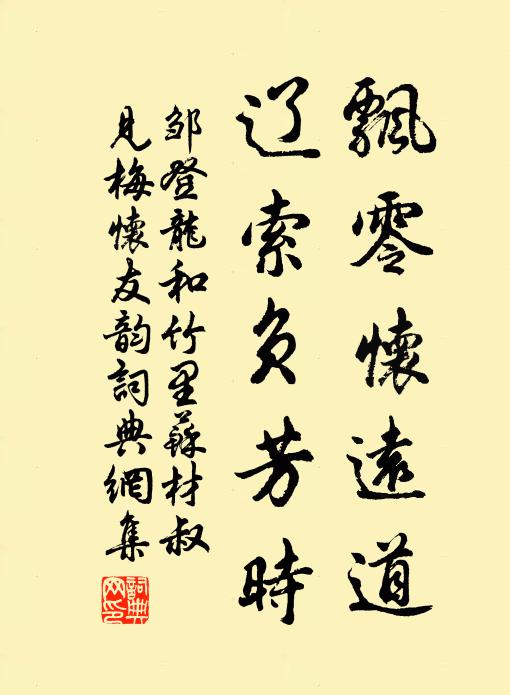 飄零懷遠道
辽索負芳時
邹登龍和竹里蘇材叔
見梅懷友韵詞典網集